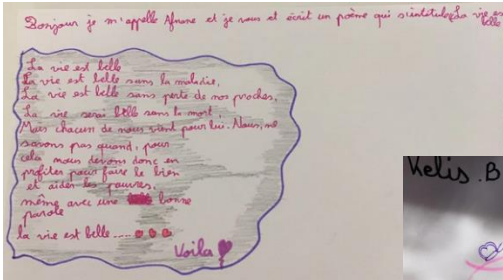 Bonjour je m'appelle Afnane et je vous et écrit un poème qui s'intitule La vie est belle
La vie est belle
La vie est belle sans la maladie,
La vie est belle sans perte de nos proches,
La vie serai belle sans la mort,
Mais chacun de nous vient pour lui. Nous, ne
savons pas quand, pour
cela nous devons donc en
profiter pour faire le bien
et aider les pauvres,
même avec une bonne
parole
la vie est belle....
Voila
Kelis.B